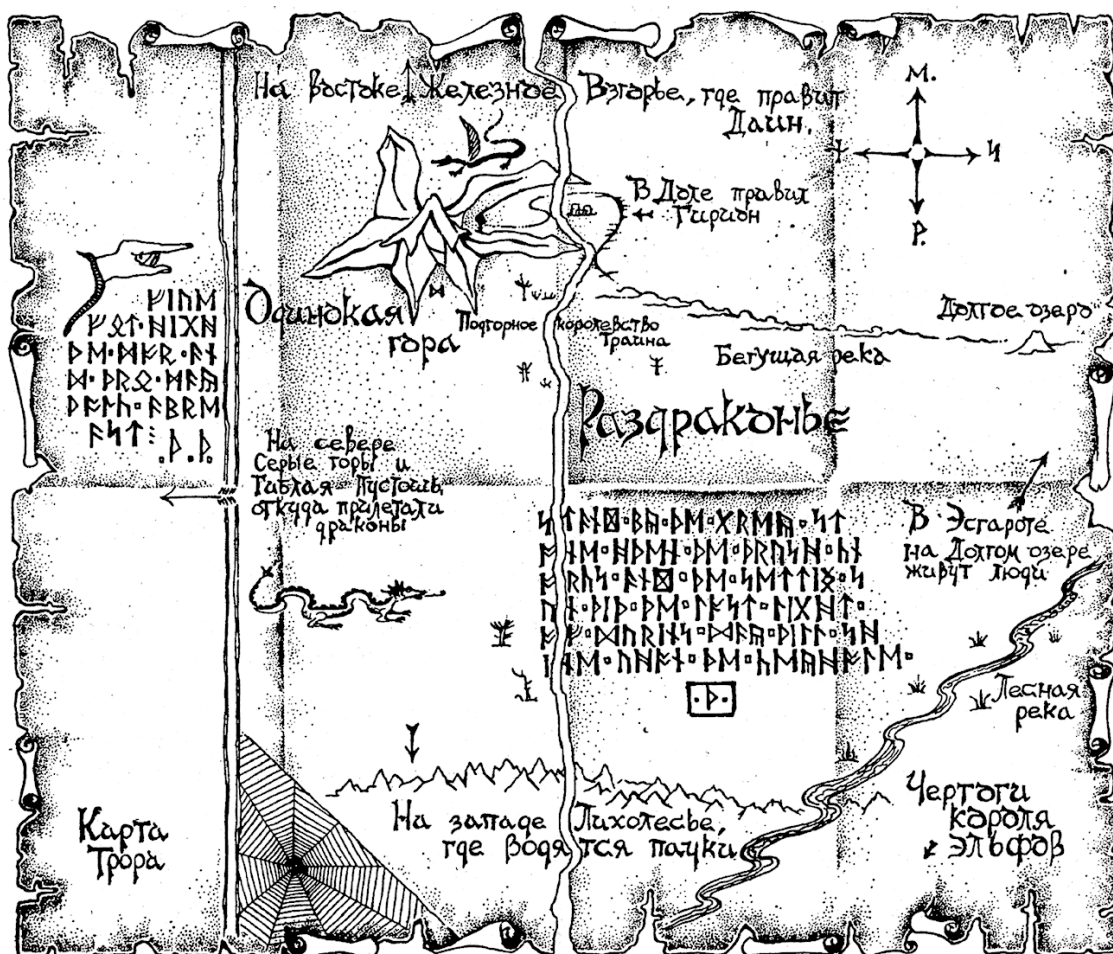 На востоке Железное Взгорье, где правит
Даин.
В Доле правил
Гирион
ᚠᛁᚢᛖ
ᚠᚩᛏ·ᚻᛁᚷᚻ
ᚦᛖ·ᛞᚩᚱ·ᚪᚾ
ᛞ·ᚦᚱᛟ·ᛗᚪᚣ
ᚹᚪᛚᚳ·ᚪᛒᚱᛖ
ᚪᛋᛏ⁝
.ᚦ.ᚦ.
Одинокая
гора
Подгорное королевство
Траина
Долгое озеро
Бегущая река
Раздраконье
На севере
Серые горы и
Гиблая Пустошь,
откуда прилетали
драконы
ᛋᛏᚪᚾᛞ·ᛒᚣ·ᚦᛖ·ᚷᚱᛖᚣ·ᛋᛏ
ᚩᚾᛖ·ᚻᚹᛖᚾ·ᚦᛖ·ᚦᚱᚢᛋᚻ·ᚳᚾ
ᚪᚾᛞ·ᚦᛖ·ᛋᛖᛏᛏᛁᛝ·ᛋ
ᚢᚾ·ᚹᛁᚦ·ᚦᛖ·ᛚᚪᛋᛏ·ᛚᛁᚷᚻᛏ·
ᚩᚠ·ᛞᚢᚱᛁᚾᛋ·ᛞᚪᚣ·ᚹᛁᛚᛚ·ᛋᚻ
ᛁᚾᛖ·ᚢᚻᚩᚾ·ᚦᛖ·ᚳᛖᚣᚻᚩᛚᛖ·
·ᚦ·
В Эсгароте
на Долгом озере
живут люди
Лесная
река
Карта
Трора
На западе Лихолесье,
где водятся пауки
Чертоги
короля
эльфов